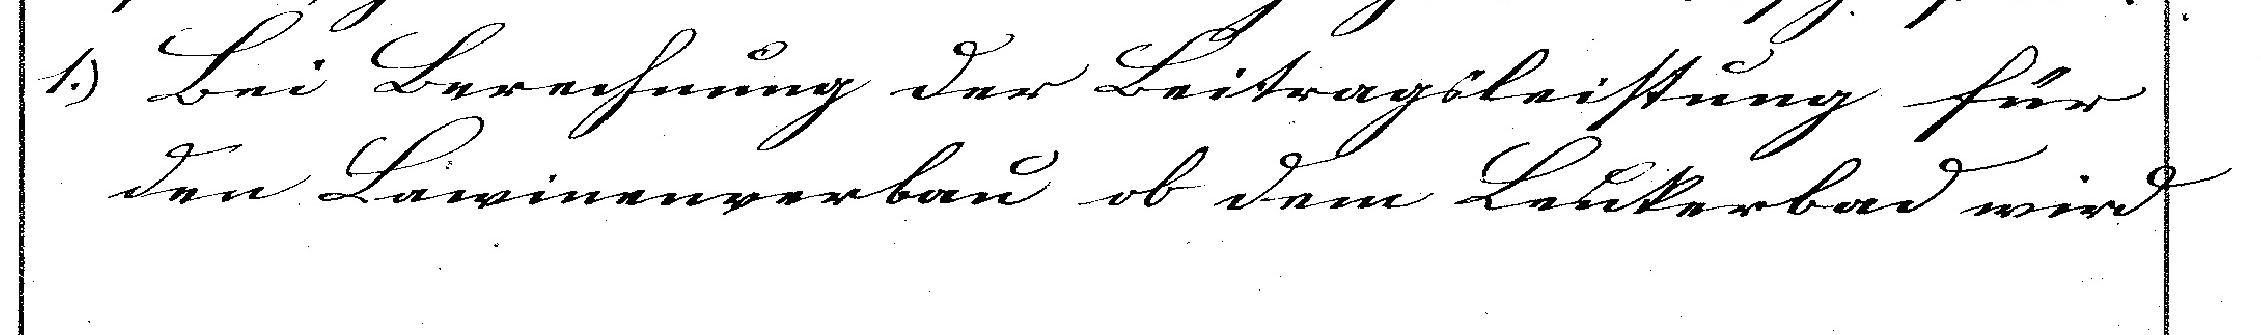 1.) Bei Berechnung der Beitragsleistung für
den Lawinenverbau ob dem Leukerbad wird